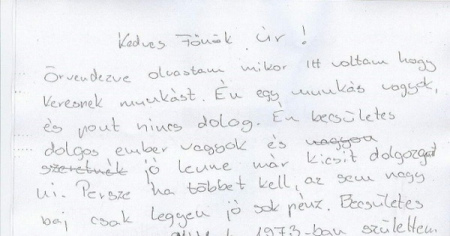 Kedves Főnök úr!
Örvendezve olvastam mikor itt voltam hogy
keresnek munkást. Én egy munkás vagyok,
és pont nincs dolog. Én becsületes
dolgos ember vagyok és nagyon
szeretnék jó lenne már kicsit dolgozgat
ni. Persze ha többet kell, az sem nagy
baj csak legyen jó sok pénz. Becsületes
1973-ban születtem